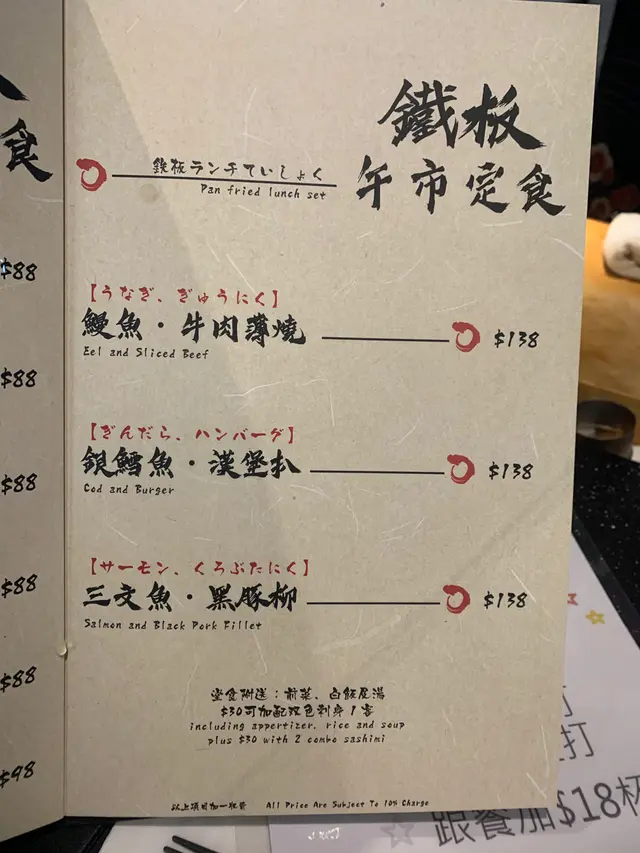 食
$88
$88
$88
$88
$88
$98
鐵板
午市定食
鉄板ランチていしょく
Pan fried lunch set
【うなぎ、ぎゅうにく】
鰻魚・牛肉薄燒
$138
Eel and Sliced Beef
【ぎんだら、ハンバーグ】
銀鱈魚・漢堡扒
$138
Cod and Burger
【サーモン、くろぶたにく】
三文魚・黑豚柳
$138
Salmon and Black Pork Fillet
堂食附送：前菜、白飯及湯
$30可加配双色刺身1客
including appertizer, rice and soup
plus $30 with 2 combo sashimi
以上項目加一收費 All Price Are Subject To 10% Charge
打
跟餐加$18杯